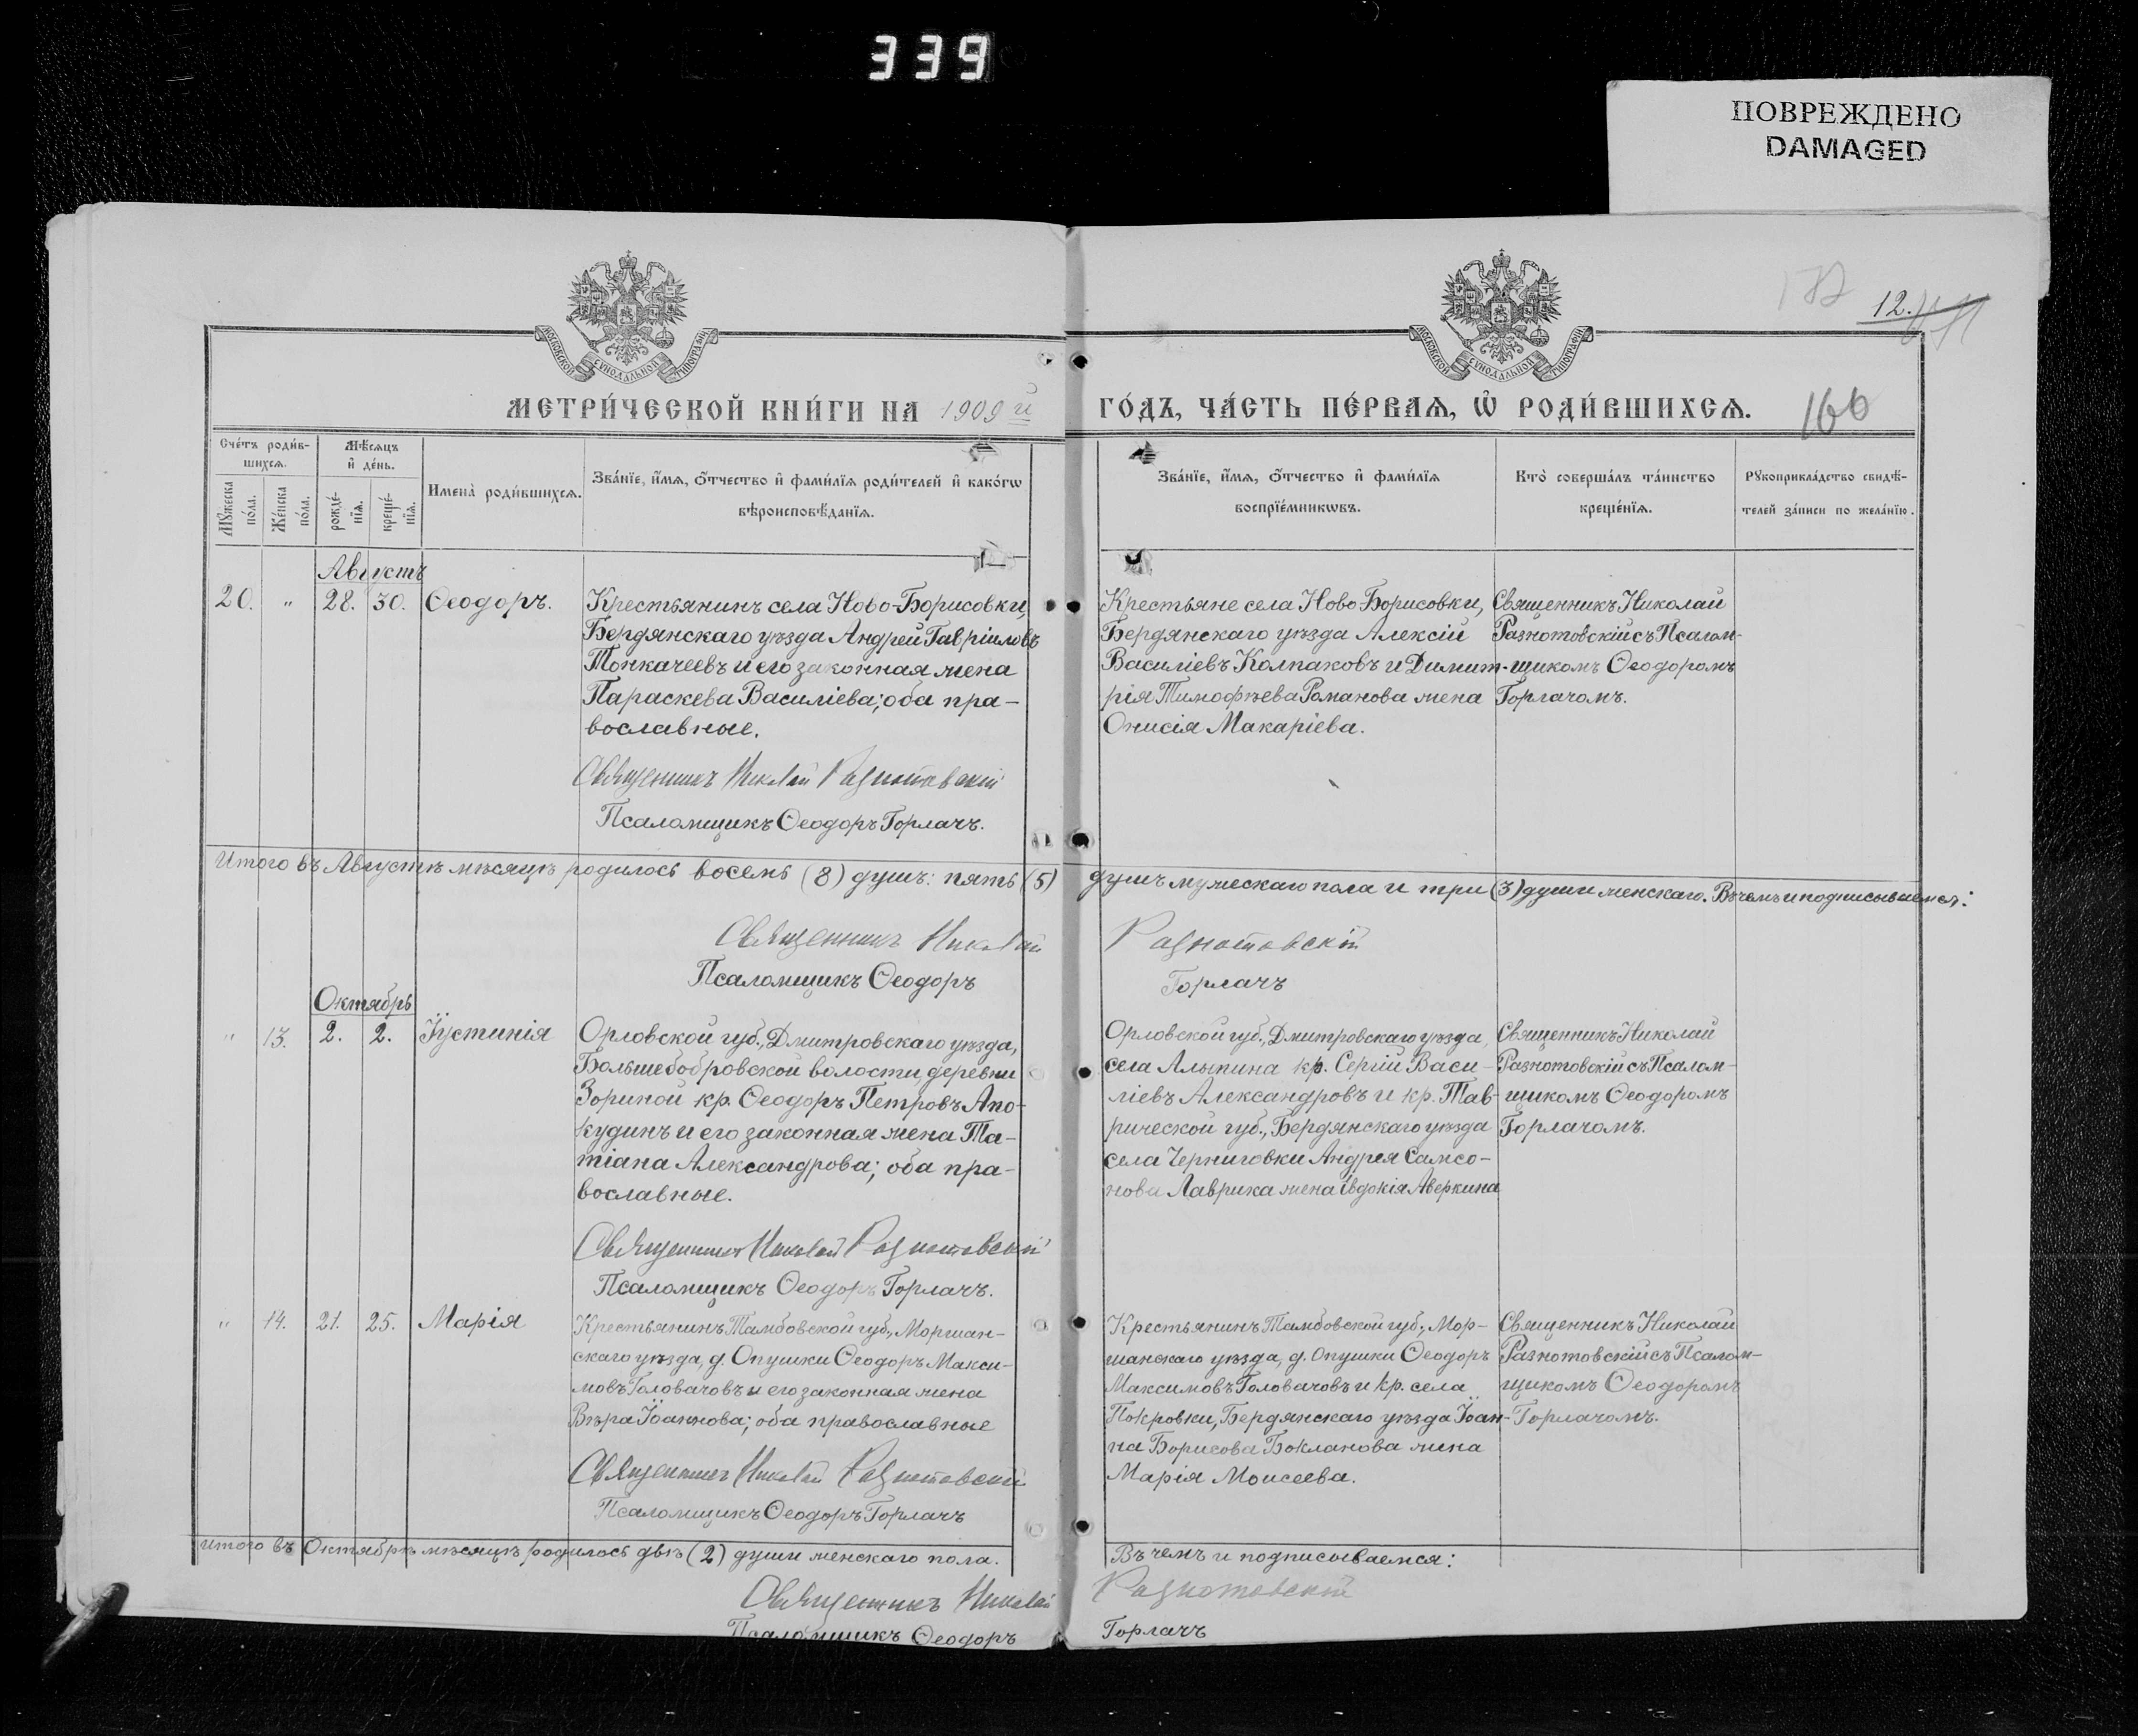 339
ПОВРЕЖДЕНО
DAMAGED
МОСКОВСКОЙ СУНОДАЛЬНОЙ ТИПОГРАФІИ
МОСКОВСКОЙ СУНОДАЛЬНОЙ ТИПОГРАФІИ
12.
МЕТРИ́ЧЕСКОЙ КНИ́ГИ НА 1909 й
ГО́ДЪ, ЧА́СТЬ ПЕ́РВАѦ, Ѡ҆ РОДИ́ВШИХСѦ.
166
Сче́тъ роди́в-
шихсѧ.
Мѣ́сѧцъ
и҆ де́нь.
Мꙋ́жеска
по́ла.
Же́нска
по́ла.
рожде́-
нїѧ.
креще́-
нїѧ.
Имена̀ роди́вшихсѧ.
Зва́нїе, и҆́мѧ, ѻ҆́тчество и҆ фами́лїѧ роди́телей и҆ како́гѡ
вѣроисповѣ́данїѧ.
Зва́нїе, и҆́мѧ, ѻ҆́тчество и҆ фами́лїѧ
воспрїе́мникѡвъ.
Кто̀ соверша́лъ та́инство
креще́нїѧ.
Рꙋкоприкла́дство свидѣ́-
телей за́писи по жела́нїю.
Августъ
20. " 28. 30. Ѳеодоръ.
Крестьянинъ села Ново-Борисовки,
Бердянскаго уѣзда Андрей Гавріиловъ
Тонкачеевъ и его законная жена
Параскева Василіева; оба пра-
вославные.
Священникъ Николай Разнотовскій
Псаломщикъ Ѳеодоръ Горлачъ.
Крестьяне села Ново-Борисовки,
Бердянскаго уѣзда Алексій
Василіевъ Колпаковъ и Димит-
рія Тимофѣева Романова жена
Онисія Макаріева.
Священникъ Николай
Разнотовскій съ Псалом-
щикомъ Ѳеодоромъ
Горлачомъ.
Итого въ Августѣ мѣсяцѣ родилось восемь (8) душъ: пять (5)
душъ мужескаго пола и три (3) души женскаго. Въ чемъ и подписываемся:
Священникъ Николай Разнотовскій
Псаломщикъ Ѳеодоръ Горлачъ
Октябрь
" 13. 2. 2. Іустинія
Орловской губ., Дмитровскаго уѣзда,
Большебобровской волости, деревни
Зориной кр. Ѳеодоръ Петровъ Апо-
кудинъ и его законная жена Та-
тіана Александрова; оба пра-
вославные.
Священникъ Николай Разнотовскій
Псаломщикъ Ѳеодоръ Горлачъ.
Орловской губ., Дмитровскаго уѣзда,
села Алыпина кр. Сергій Васи-
ліевъ Александровъ и кр. Тав-
рической губ., Бердянскаго уѣзда
села Черниговки Андрея Самсо-
нова Лаврика жена Евдокія Аверкина
Священникъ Николай
Разнотовскій съ Псалом-
щикомъ Ѳеодоромъ
Горлачомъ.
" 14. 21. 25. Марія
Крестьянинъ Тамбовской губ., Моршан-
скаго уѣзда, д. Опушки Ѳеодоръ Макси-
мовъ Головачовъ и его законная жена
Вѣра Іоаннова; оба православные
Священникъ Николай Разнотовскій
Псаломщикъ Ѳеодоръ Горлачъ
Крестьянинъ Тамбовской губ., Мор-
шанскаго уѣзда, д. Опушки Ѳеодоръ
Максимовъ Головачовъ и кр. села
Покровки, Бердянскаго уѣзда Іоан-
на Борисова Бокланова жена
Марія Моисеева.
Священникъ Николай
Разнотовскій съ Псалом-
щикомъ Ѳеодоромъ
Горлачомъ.
Итого въ Октябрѣ мѣсяцѣ родилось двѣ (2) души женскаго пола.
Въ чемъ и подписываемся:
Священникъ Николай Разнотовскій
Псаломщикъ Ѳеодоръ Горлачъ